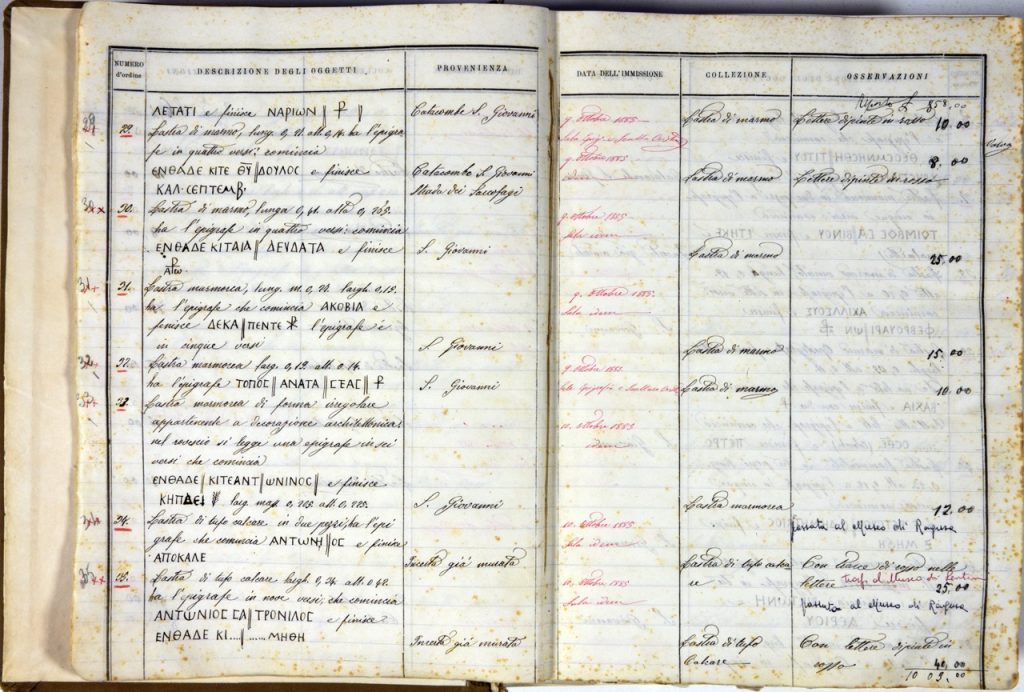 NUMERO d'ordine
DESCRIZIONE DEGLI OGGETTI
PROVENIENZA
DATA DELL'IMMISSIONE
COLLEZIONE
OSSERVAZIONI
Riporto £ 858.00
ΛΕΤΑΤΙ e finisce ΝΑΡΙΩΝ
Catacombe S. Giovanni
9. Ottobre 1885
Lastra di marmo
Lettere dipinte in rosso 10.00
29
29. Lastra di marmo, lung. 0,21. alt. 0,14. ha l'epigra
fe in quattro versi: comincia
9. Ottobre 1885
8.00
ΕΝΘΑΔΕ ΚΙΤΕ ΘΥ ΔΟΥΛΟC e finisce
Catacombe S. Giovanni
idem
Lastra di marmo
Lettere dipinte in rosso
ΚΑΛ·CΕΠΤΕΜΒ.
Strada dei Sarcofagi
30
30. Lastra di marmo, lunga 0,41. alta 0,265.
9. Ottobre 1885
ha l'epigrafe in quattro versi: comincia
Sala idem
ΕΝΘΑΔΕ ΚΙΤΑΙΑ ΔΕΥΔΑΤΑ e finisce
S. Giovanni
Lastra di marmo
25.00
31
31. Lastra marmorea, lung. m. 0,21. largh. 0,19.
9. Ottobre 1885
ha l'epigrafe che comincia ΑΚΟΒΙΑ e
Sala idem
finisce ΔΕΚΑ ΠΕΝΤΕ l'epigrafe è
in cinque versi
S. Giovanni
Lastra di marmo
15.00
32
Lastra marmorea larg. 0,12. alt. 0.14.
9. Ottobre 1885
ha l'epigrafe ΤΟΠΟC ΑΝΑΤΑ
S. Giovanni
Lastra di marmo
10.00
Lastra marmorea di forma irregolare
appartenente a decorazione architettonica:
10. Ottobre 1885
nel rovescio si legge una epigrafe in sei
idem
versi che comincia
ΕΝΘΑΔΕ ΚΙΤΕΑΝΤ ΩΝΙΝΟC e finisce
ΚΗΠΔΕΙ larg. mass. 0,205. alt. 0,225.
S. Giovanni
Lastra marmorea
12.00
34. Lastra di tufo calcare in due pezzi, ha l'epi
10. Ottobre 1885
passata al Museo di Ragusa
grafe che comincia ΑΝΤΩΝΗ ΟC e finisce
Sala idem
ΑΠΟΚΑΛΕ
Incerta già murata
Lastra di tufo calca
re
Con tracce di rosso nelle
lettere trasf. al Museo di
25.00
35
Lastra di tufo calcare largh. 0,24. alt. 0,42.
10. Ottobre 1885
ha l'epigrafe in nove versi, che comincia
Sala idem
passata al Museo di Ragusa
ΑΝΤΩΝΙΟC CΑ ΤΡΟΝΙΛΟC e finisce
ΕΝΘΑΔΕ ΚΙ.... ...... ΜΗΘΗ
Incerta già murata
Lastra di tufo
Calcare
Con lettere dipinte in
rosso
40.00